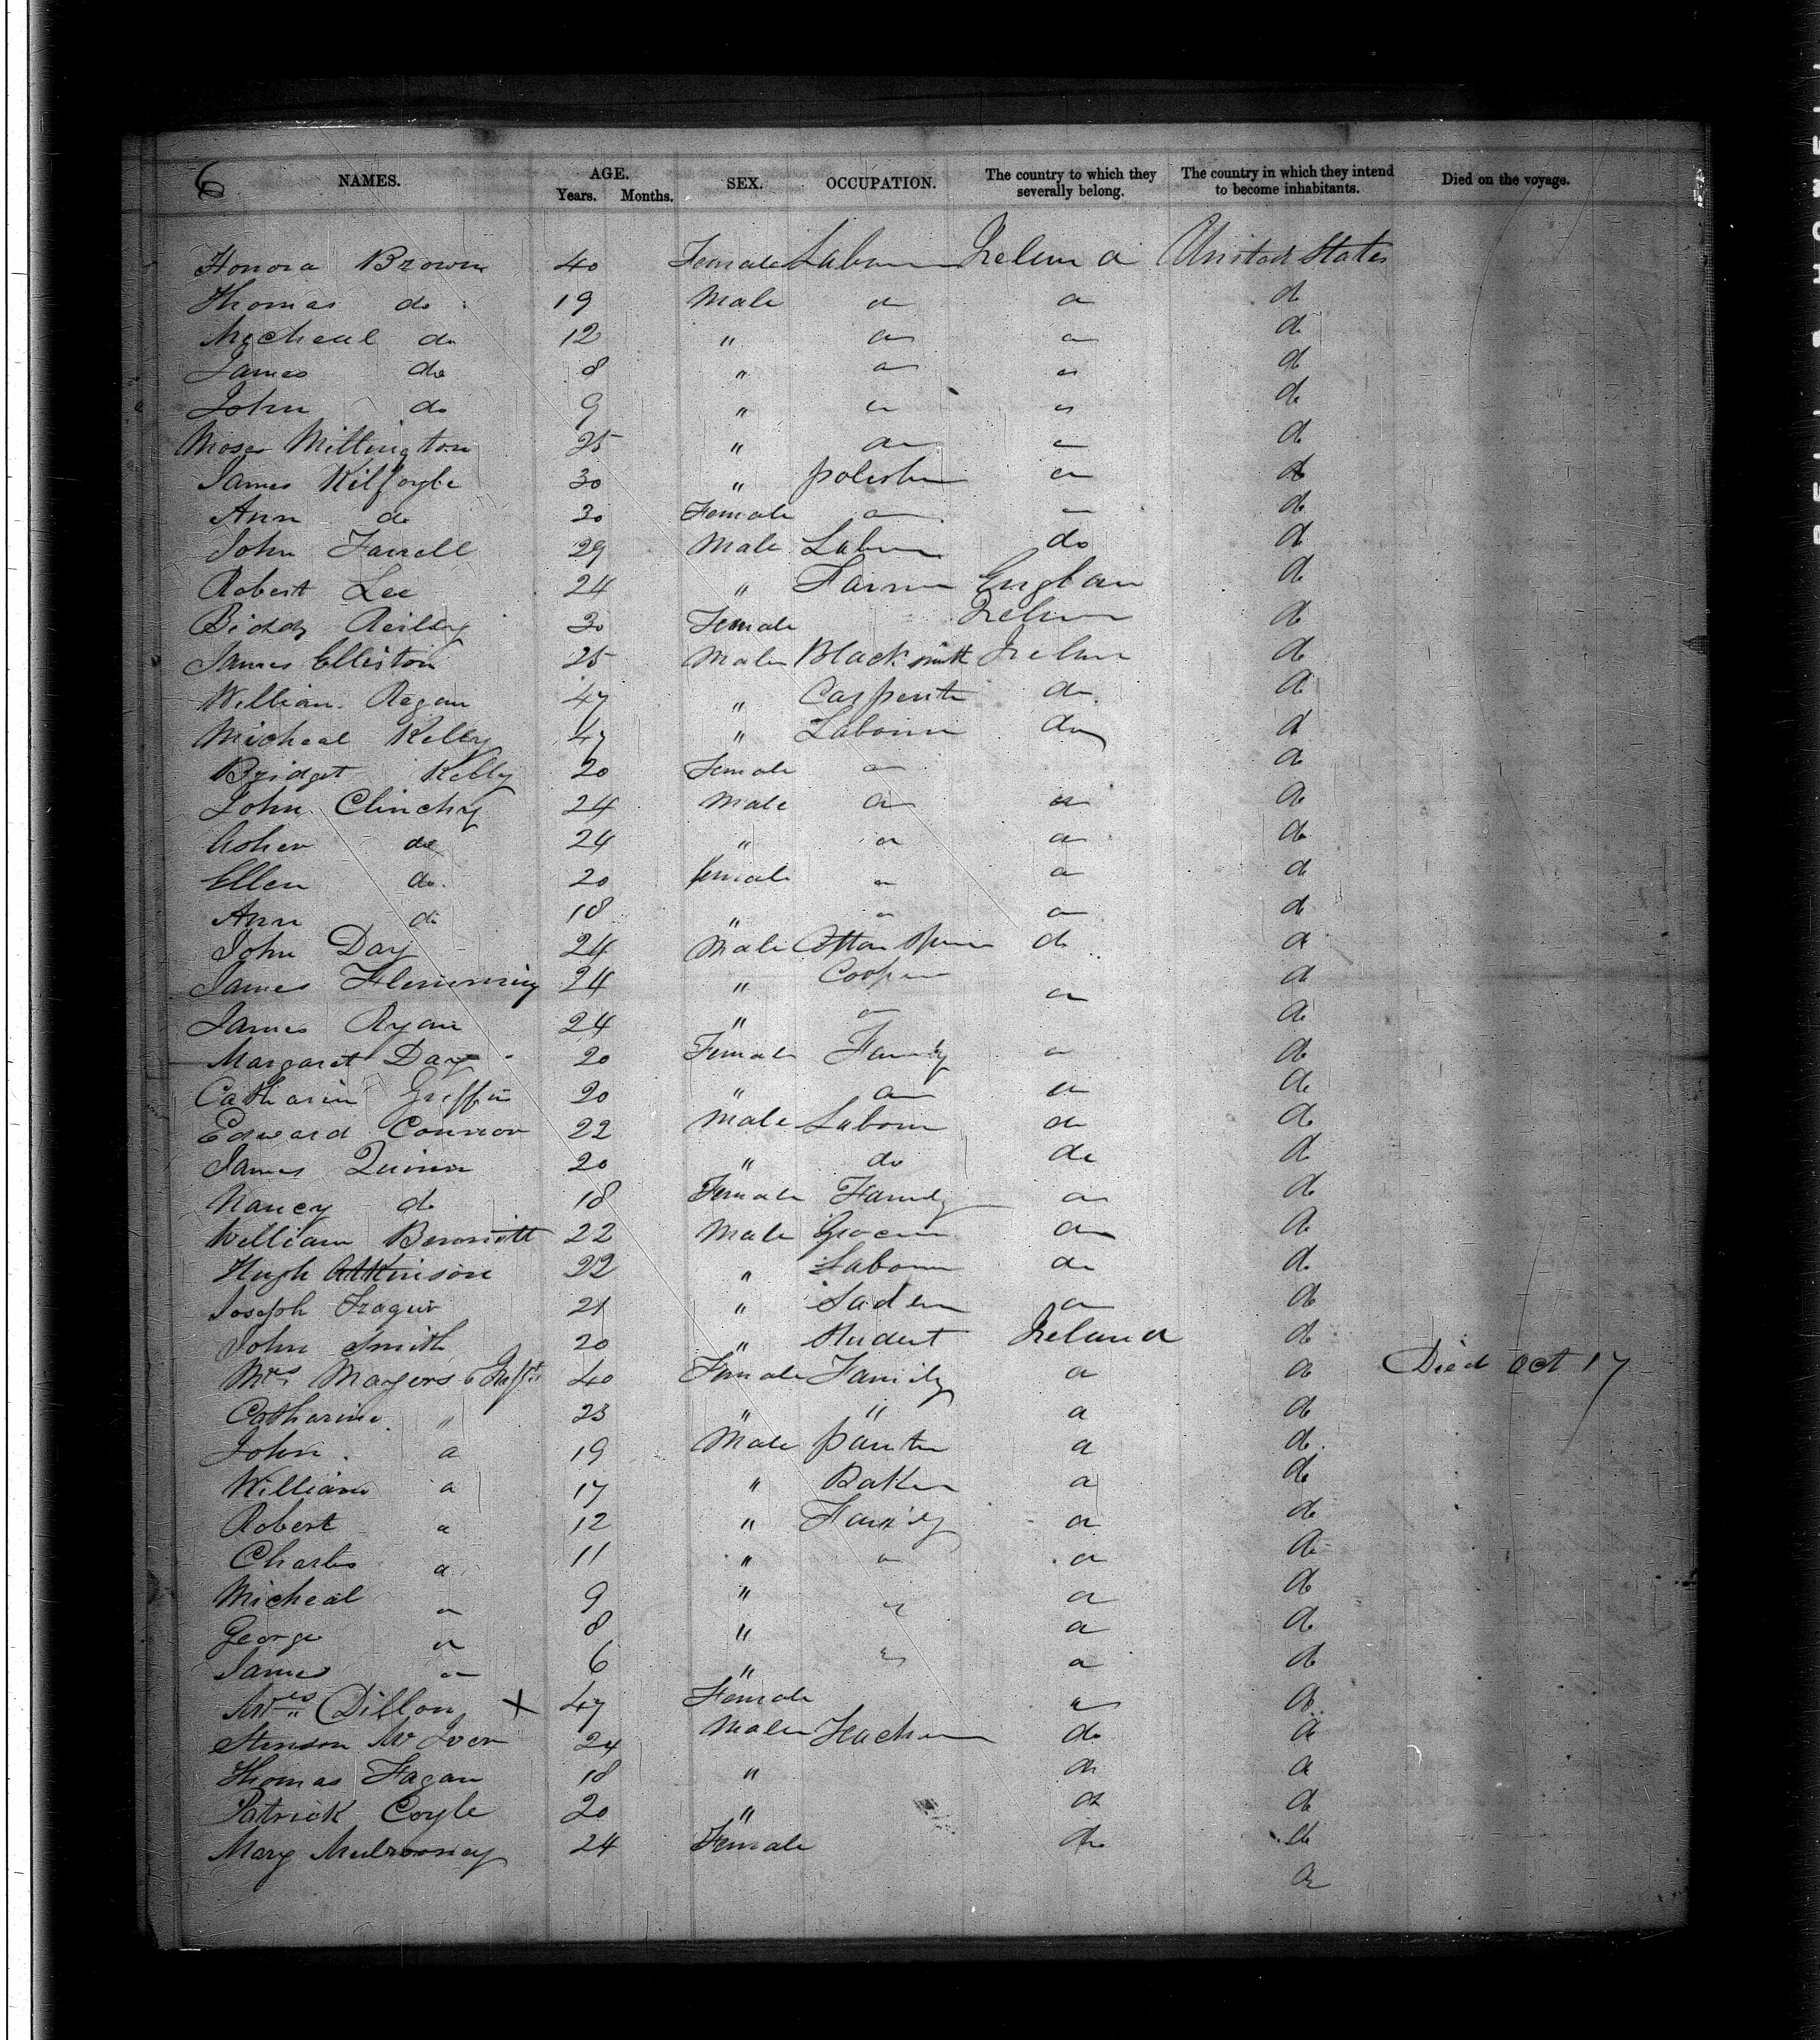 6 NAMES. AGE. Years. Months. SEX. OCCUPATION. The country to which they severally belong. The country in which they intend to become inhabitants. Died on the voyage.
Honora Brown 40 Female Labour Ireland United States
Thomas do 19 Male do do do
Micheal do 12 " do do do
James do 8 " do do do
John do 9 " do do do
Moses Millington 25 " do do do
James Kilfoyle 30 " polisher do do
Ann do 20 Female do do do
John Farrell 29 Male Labour do do
Robert Lee 24 " Farmer England do
Biddy Reilly 30 Female Ireland do
James Elliston 25 Male Blacksmith Ireland do
William Regan 47 " Carpenter do do
Micheal Kelly 47 " Labourer do do
Bridget Kelly 20 Female do do
John Clinchy 24 Male do do do
do 24 " do do do
Ellen do 20 female do do do
Ann do 18 " do do do
John Day 24 Male Cotton Spinner do do
James Flemming 24 " Cooper do do
James Ryan 24 " do do
Margaret Day 20 Female Family do do
Catharin Griffin 20 " do do do
Edward Connor 22 Male Labour do do
James Quinn 20 " do do do
Nancy do 18 Female Family do do
William Bennett 22 Male Grocer do do
Hugh Atkinson 22 " Labour do do
Joseph 21 " Sadler do do
John Smith 20 " Student Ireland do
Mrs Mayers 40 Female Family do do Died Oct 17
Catharine " 23 " " do do
John do 19 Male painter do do
William do 17 " Baker do do
Robert do 12 " Family do do
Charles do 11 " do do do
Micheal do 9 " do do do
George do 8 " do do
James do 6 " do do do
Mrs Dillon X 47 Female do do
Stenson McIver 24 Male do do
Thomas Fagan 18 " do do
Patrick Coyle 20 " do do
Mary Mulrooney 24 Female do do
do